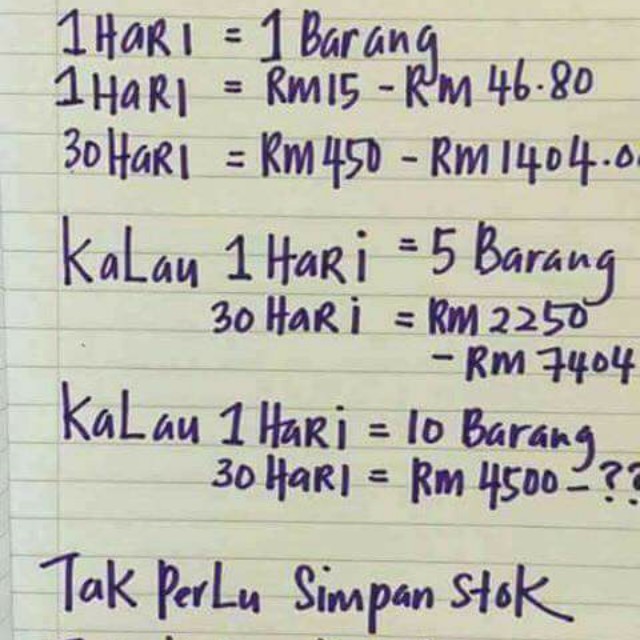 1 HARI = 1 Barang
1 HARI = RM15 - RM 46.80
30 HARI = RM 450 - RM 1404.0
KaLau 1 HaRi = 5 Barang
30 HaRi = RM 2250
- RM 7404
KaLau 1 HaRi = 10 Barang
30 HARI = RM 4500 - ??
Tak PerLu Simpan Stok